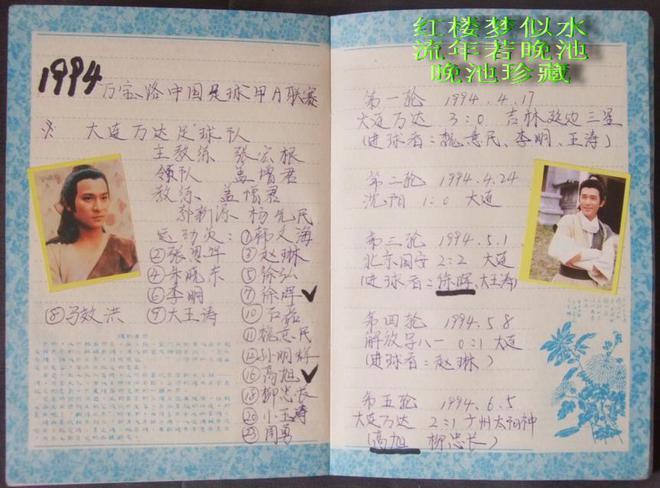 红楼梦似水
流年若晚池
晚池珍藏
1994 万宝路中国足球甲A联赛
大连万达足球队
主教练 张宏根
领队 盖增君
教练 盖增君
郭新源 杨先民
运动员：①韩文海
②张恩华 ③赵琳
④朱晓东 ⑤徐弘
⑥李明 ⑦徐晖
⑧马效洪 ⑨大王涛 ⑩石磊
⑪魏意民
⑫孙明辉
⑯高旭
⑱柳忠长
⑳小王涛
周勇
第一轮 1994.4.17
大连万达 3:0 吉林延边三星
(进球者：魏意民、李明、王涛)
第二轮 1994.4.24
沈阳 1:0 大连
第三轮 1994.5.1
北京国安 2:2 大连
(进球者：徐晖、大王涛)
第四轮 1994.5.8
解放军八一 0:1 大连
(进球者：赵琳)
第五轮 1994.6.5
大连万达 2:1 广州太阳神
(高旭 柳忠长)